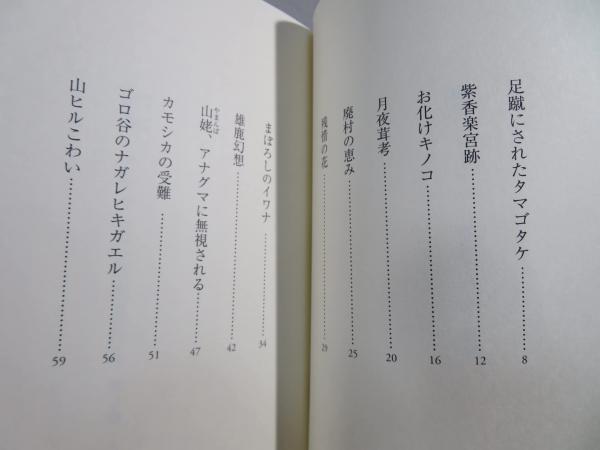 足蹴にされたタマゴタケ……………………8
紫香楽宮跡……………………12
お化けキノコ……………………16
月夜茸考……………………20
廃村の恵み……………………25
残惜の花……………………29
まぼろしのイワナ……………………34
雄鹿幻想……………………42
山姥、アナグマに無視される……………………47
やまんば
カモシカの受難……………………51
ゴロ谷のナガレヒキガエル……………………56
山ヒルこわい……………………59